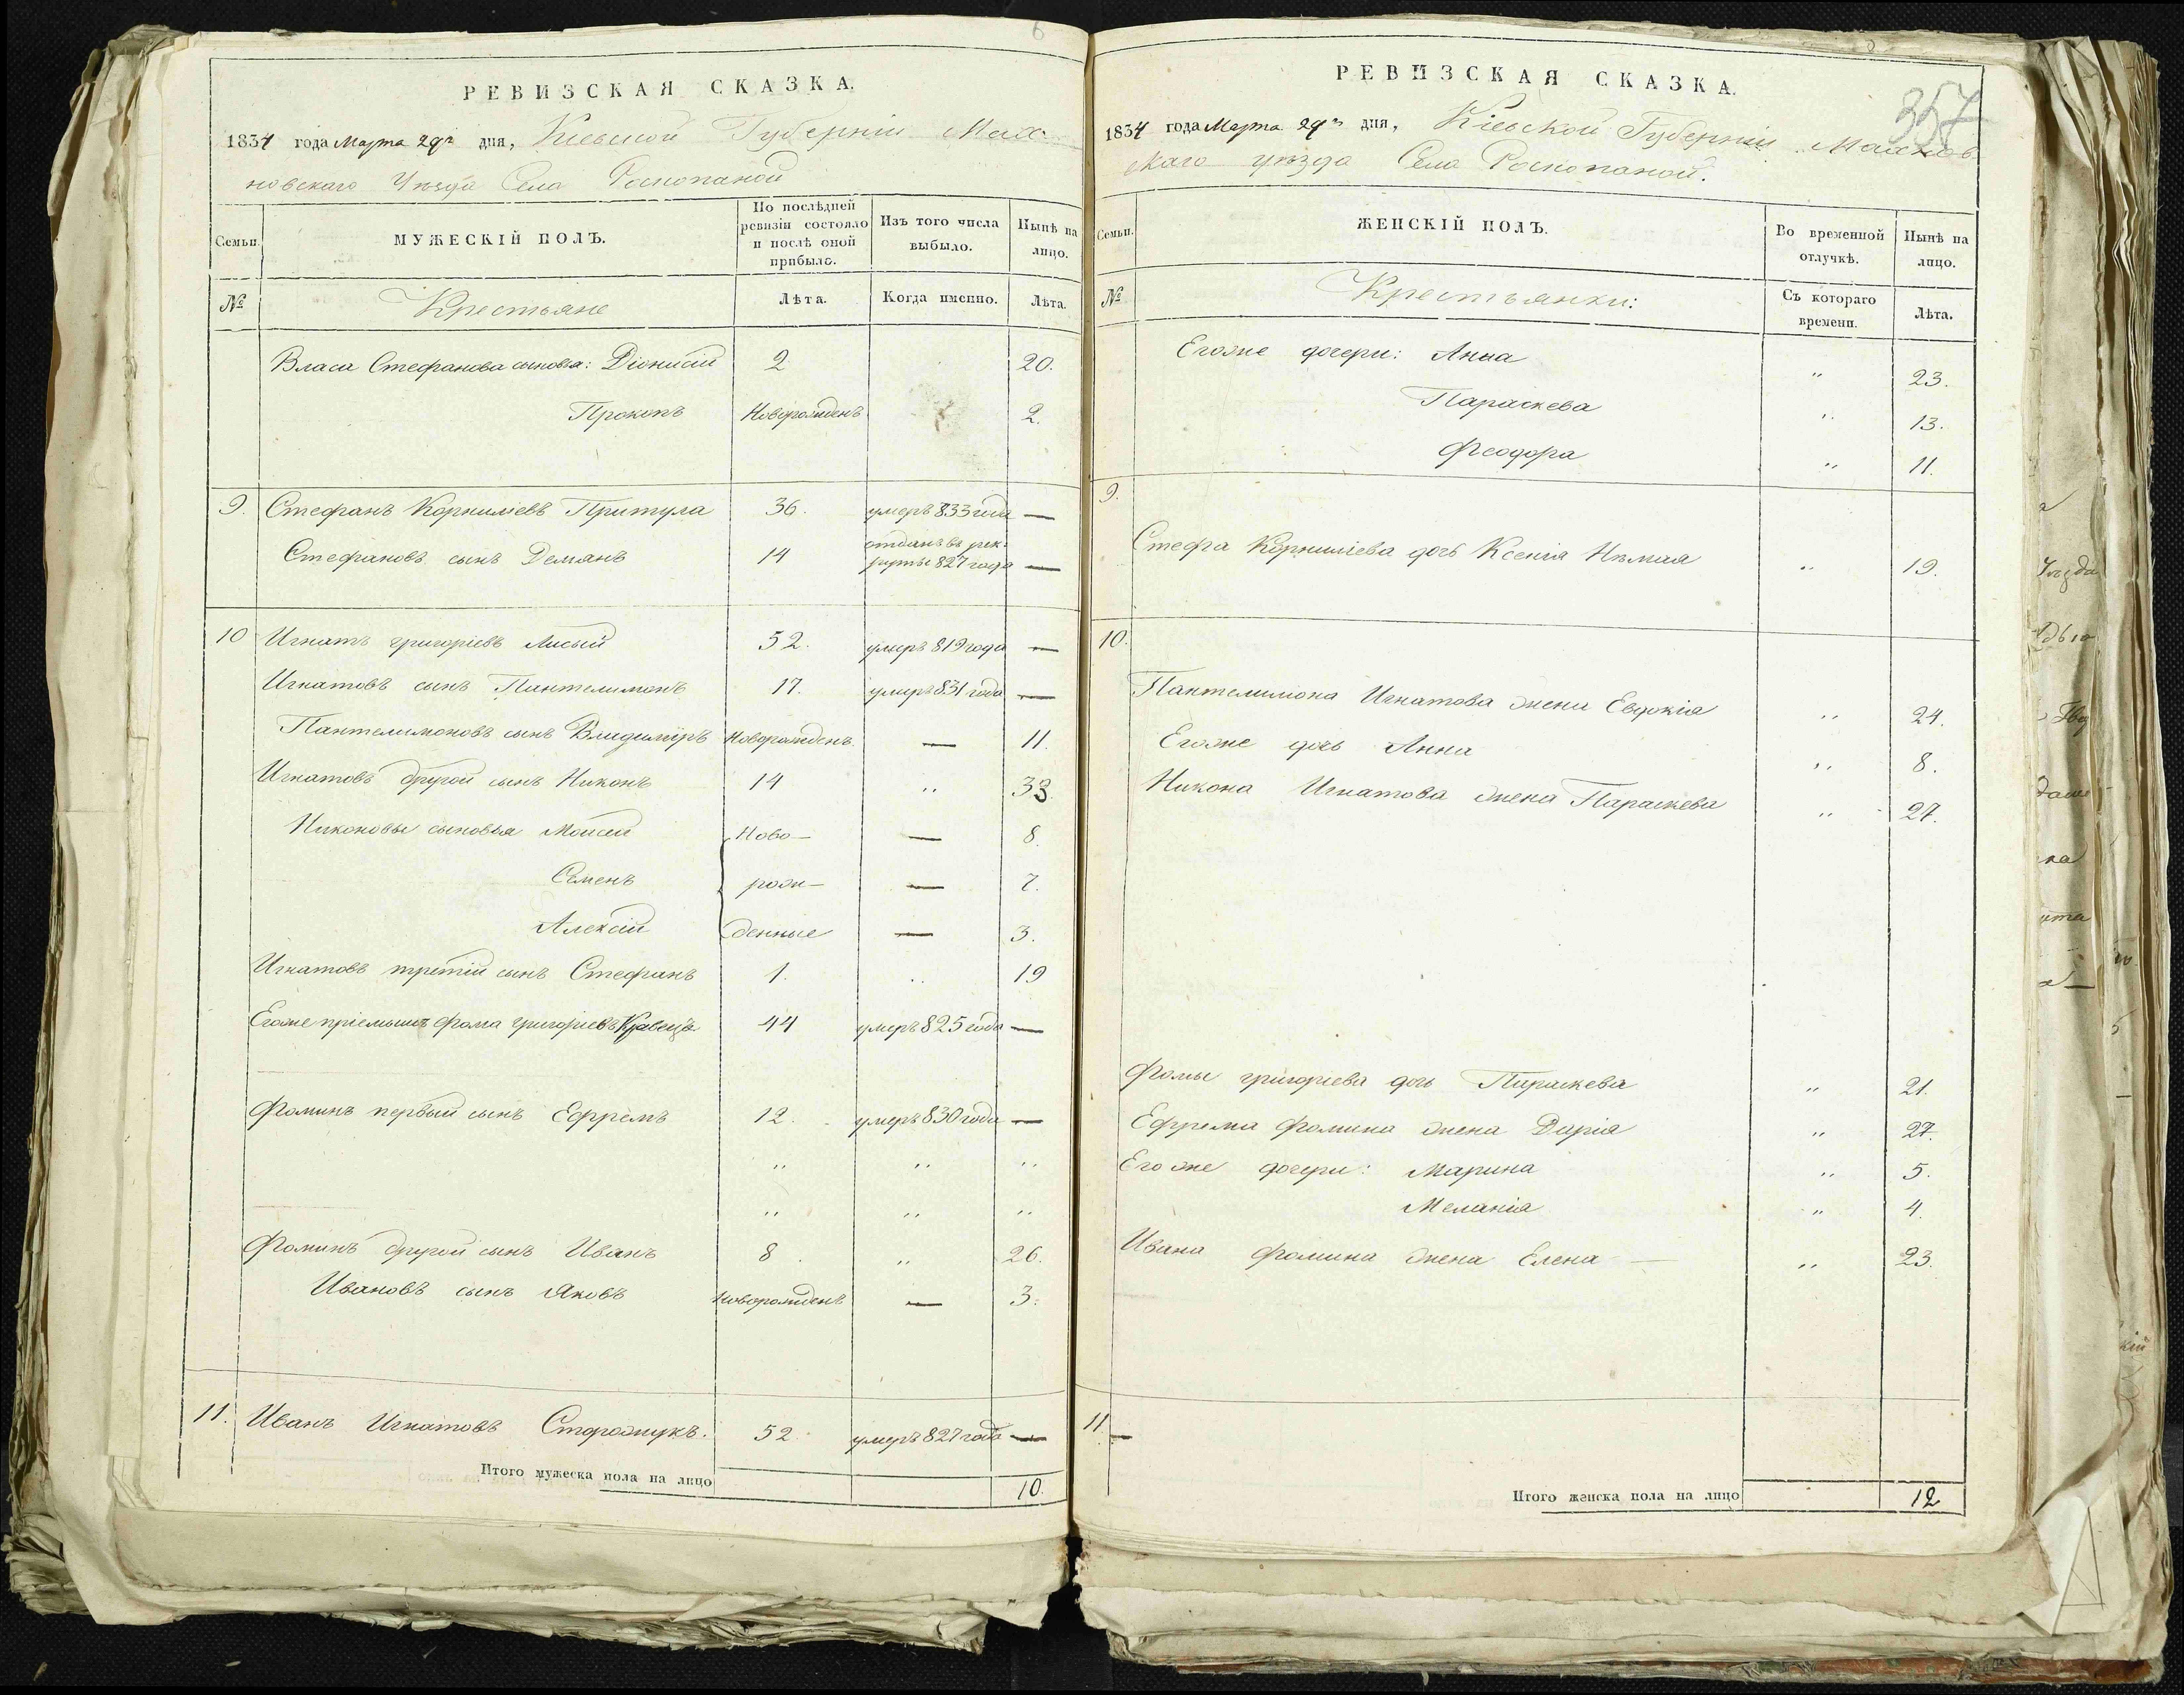 6
РЕВИЗСКАЯ СКАЗКА.
1834 года Марта 29го дня, Кіевской Губерніи Мах-
новскаго Уѣзда Села Роскопаной
Семьи.
МУЖЕСКІЙ ПОЛЪ.
По послѣдней ревизіи состояло и послѣ оной прибыло.
Изъ того числа выбыло.
Нынѣ на лицо.
№
Крестьяне
Лѣта.
Когда именно.
Лѣта.
Власа Стефанова сыновья: Діонисій 2 20.
Прокопъ Новорожденъ 2.
9. Стефанъ Корниліевъ Притула 36. умеръ 833 года —
Стефановъ сынъ Демянъ 14 отданъ въ рек-
руты 827 года —
10 Игнатъ григоріевъ Лисый 52. умеръ 819 года —
Игнатовъ сынъ Пантелимонъ 17. умеръ 831 года —
Пантелимоновъ сынъ Владимиръ Новорожденъ. — 11.
Игнатовъ другой сынъ Никонъ 14 „ 33.
Никоновы сыновья Моисей Ново- — 8.
Семенъ рож- — 7.
Алексій денные — 3.
Игнатовъ третій сынъ Стефанъ 1. „ 19
Егоже пріемышъ Фома григоріевъ Кравецъ 44 умеръ 825 года —
Фоминъ первый сынъ Ефремъ 12. умеръ 830 года —
„ „ „
„ „ „
Фоминъ другой сынъ Иванъ 8. „ 26.
Ивановъ сынъ Яковъ Новорожденъ — 3.
11. Иванъ Игнатовъ Сторожукъ. 52 умеръ 827 года —
Итого мужеска пола на лицо 10.
357
РЕВИЗСКАЯ СКАЗКА.
1834 года Марта 29го дня, Кіевской Губерніи Махнов-
скаго уѣзда Села Роскопаной.
Семьи.
ЖЕНСКІЙ ПОЛЪ.
Во временной отлучкѣ.
Нынѣ на лицо.
№
Крестьянки:
Съ котораго времени.
Лѣта.
Егоже дочери: Анна „ 23.
Параскева „ 13.
Феодора „ 11.
9.
Стефа Корниліева дочь Ксенія Нѣмая „ 19.
10.
Пантелимона Игнатова жена Евдокія „ 24.
Егоже дочь Анна „ 8.
Никона Игнатова жена Параскева „ 27.
Фомы григоріева дочь Параскева „ 21.
Ефрема Фомина жена Дарія „ 27.
Егоже дочери: Марина „ 5.
Меланія „ 4.
Ивана Фомина жена Елена — „ 23.
11 —
Итого женска пола на лицо 12